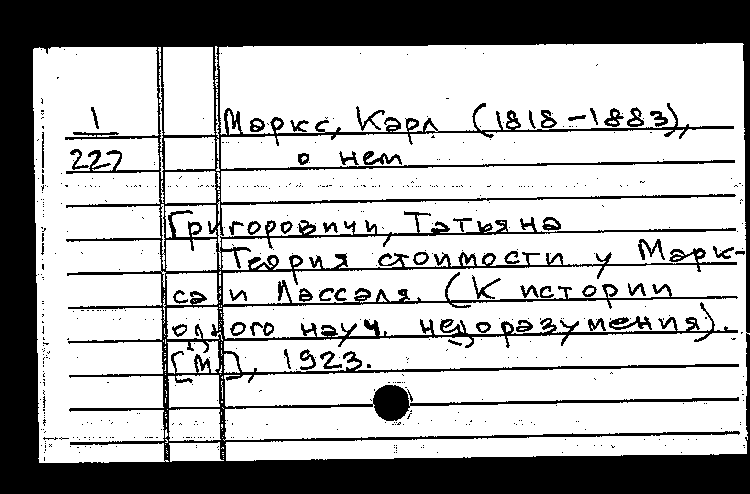 1
227
Маркс, Карл (1818-1883),
о нем
Григоровичи, Татьяна
Теория стоимости у Марк-
са и Лассаля. (К истории
одного науч. недоразумения).
[М.], 1923.